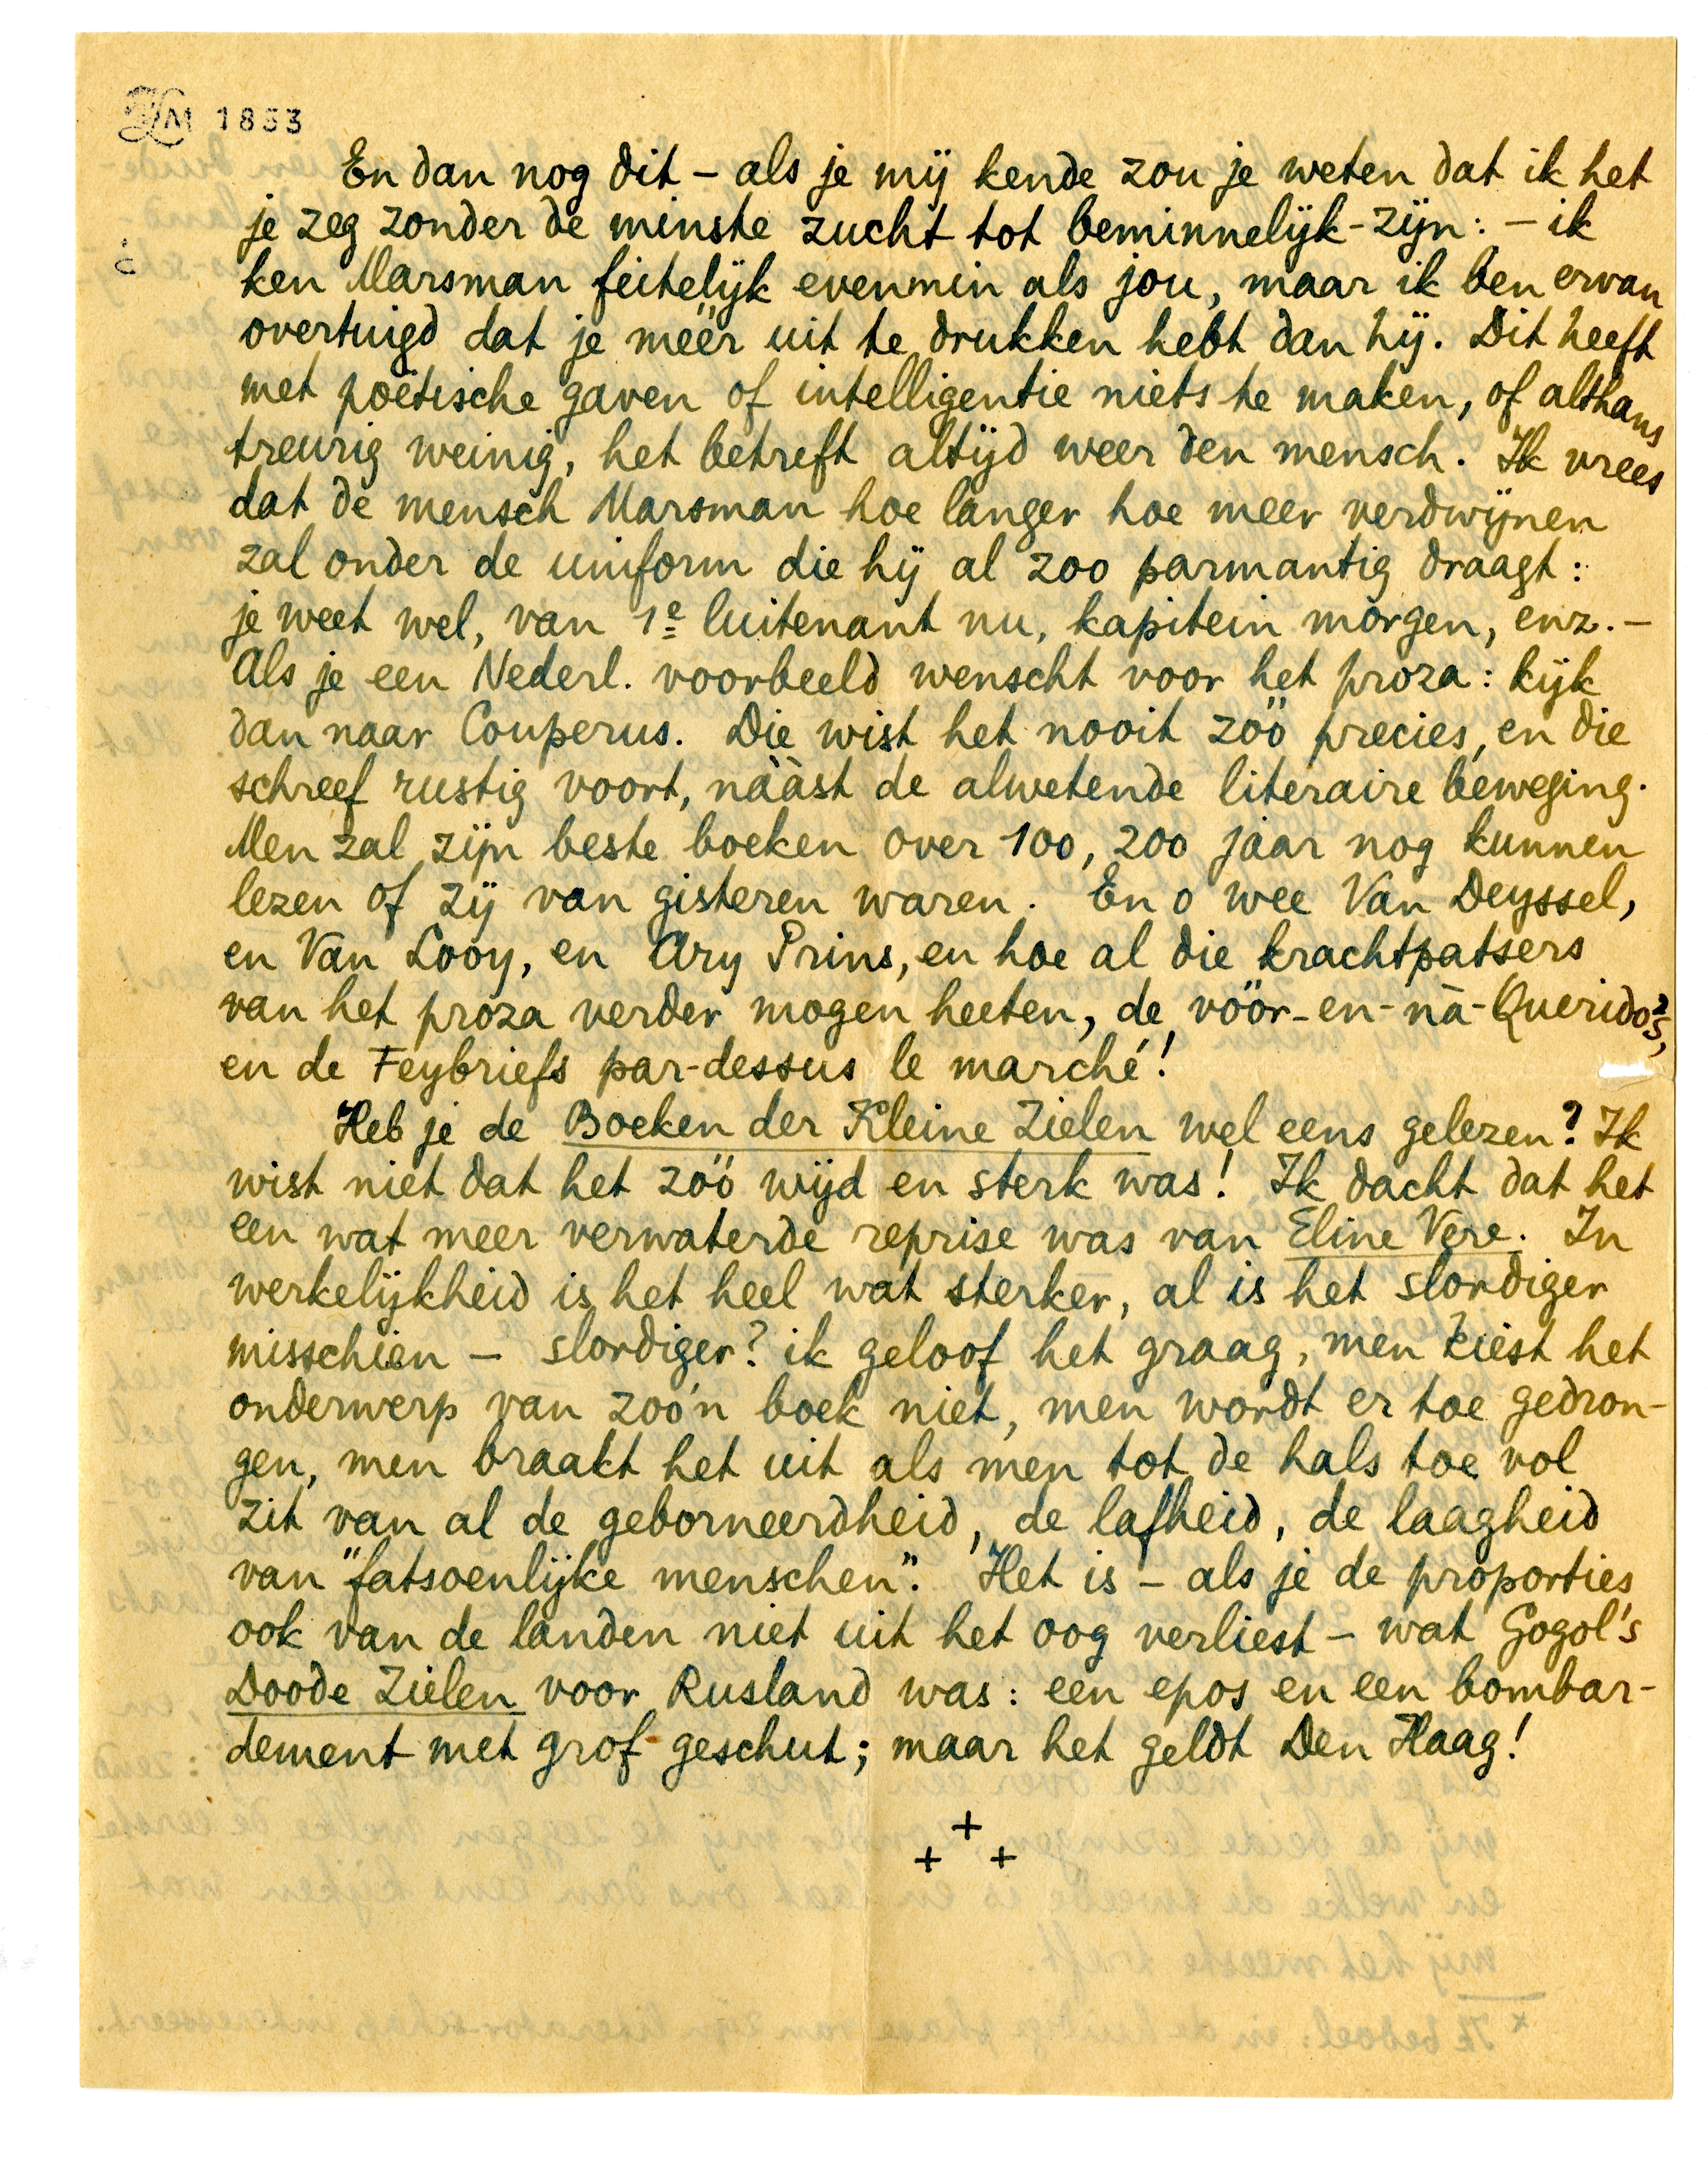 LM 1853
En dan nog dit – als je mij kende zou je weten dat ik het
je zeg zonder de minste zucht tot beminnelijk-zijn: – ik
ken Marsman feitelijk evenmin als jou, maar ik ben ervan
overtuigd dat je méér uit te drukken hebt dan hij. Dit heeft
met poëtische gaven of intelligentie niets te maken, of althans
treurig weinig, het betreft altijd weer den mensch. Ik vrees
dat de mensch Marsman hoe langer hoe meer verdwijnen
zal onder de uniform die hij al zoo parmantig draagt:
je weet wel, van 1e luitenant nu, kapitein morgen, enz. –
Als je een Nederl. voorbeeld wenscht voor het proza: kijk
dan naar Couperus. Die wist het nooit zóó precies, en die
schreef rustig voort, nààst de alwetende literaire beweging.
Men zal zijn beste boeken over 100, 200 jaar nog kunnen
lezen of zij van gisteren waren. En o wee Van Deyssel,
en Van Looy, en Ary Prins, en hoe al die krachtpatsers
van het proza verder mogen heeten, de vóór-en-na-Querido's,
en de Feybriefs par-dessus le marché!
Heb je de Boeken der Kleine Zielen wel eens gelezen? Ik
wist niet dat het zóó wijd en sterk was! Ik dacht dat het
een wat meer verwaterde reprise was van Eline Vere. In
werkelijkheid is het heel wat sterker, al is het slordiger
misschien – slordiger? ik geloof het graag, men kiest het
onderwerp van zoo'n boek niet, men wordt er toe gedron-
gen, men braakt het uit als men tot de hals toe vol
zit van al de geborneerdheid, de lafheid, de laagheid
van "fatsoenlijke menschen". Het is – als je de proporties
ook van de landen niet uit het oog verliest – wat Gogol's
Doode Zielen voor Rusland was: een epos en een bombar-
dement met grof geschut; maar het geldt Den Haag!
+
+ +